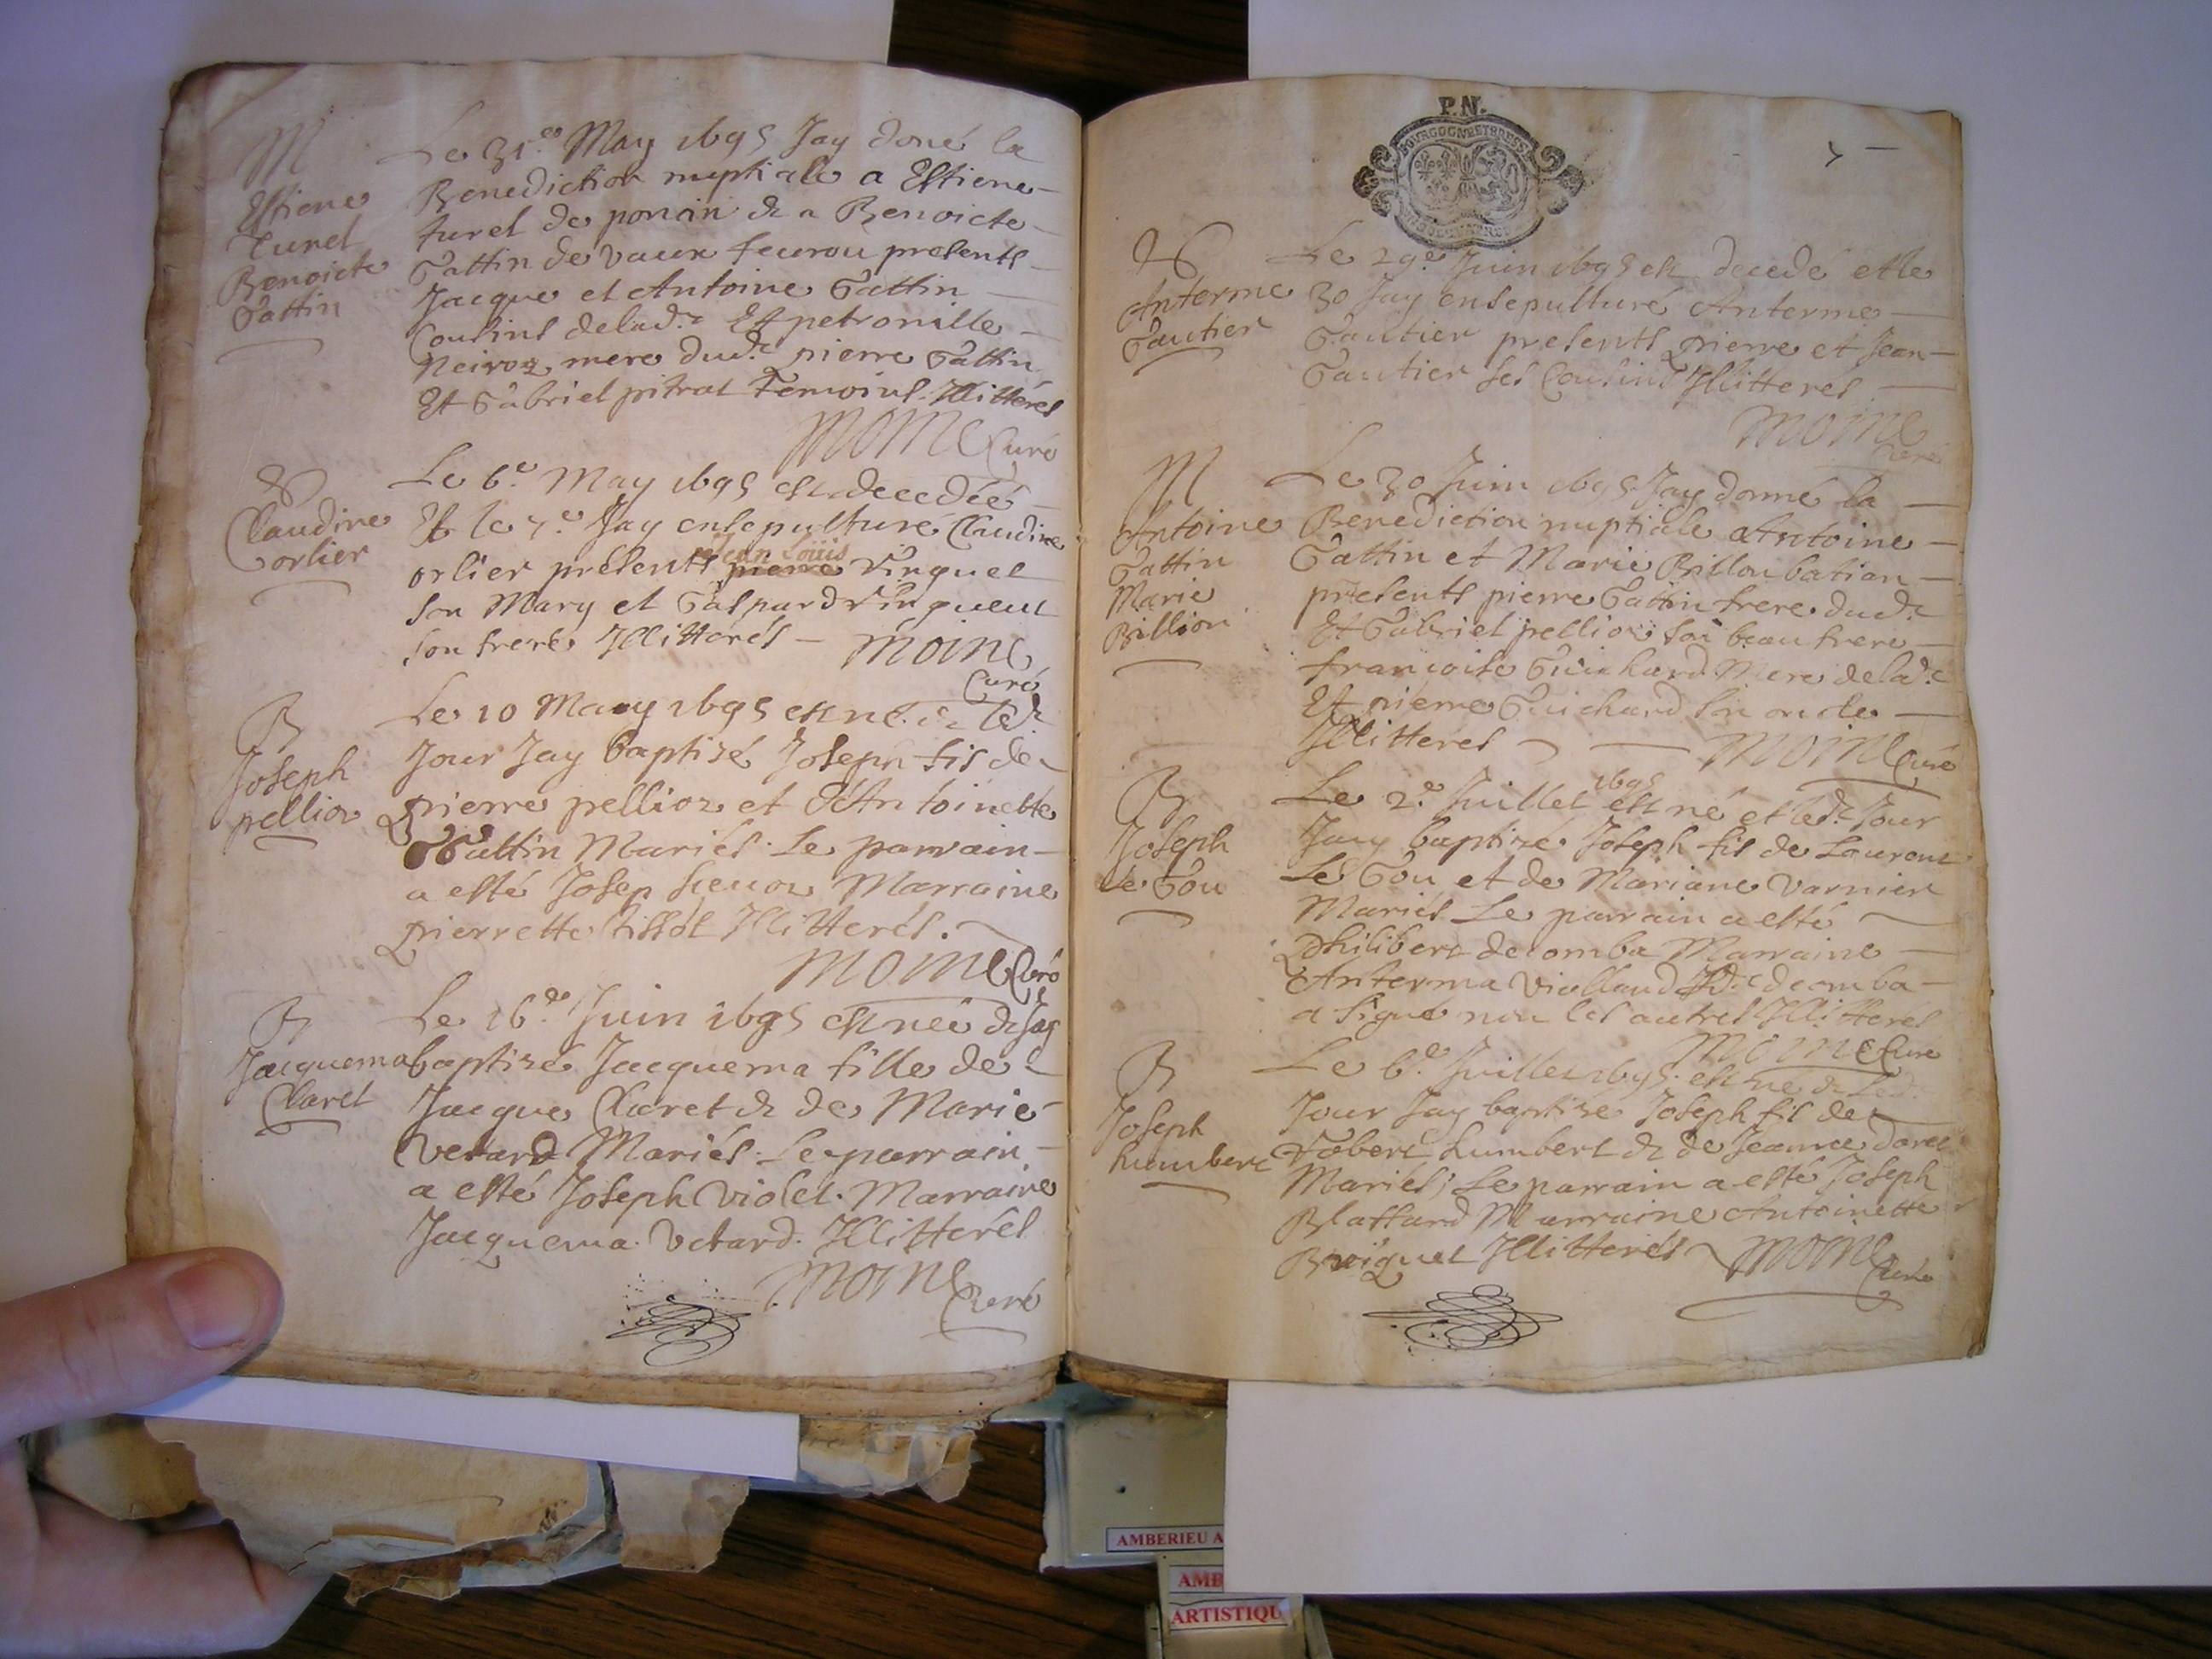 M
Estiene
Turel
Benoicte
Gattin
Le 31.e May 1695 Jay doné la
Benediction nuptiale a Estiene
turel de poncin & a Benoicte
Gattin de vaux feurou presents
Jacque et Antoine Gattin
Cousins delad.e Et petronille
Neiroz mere dud.e pierre Gattin
Et Gabriel pitrat Temoins. Illitterés
Moine Curé
Claudine
orlier
Le 6.e May 1695 est decedée
Et le 7.e Jay ensepulturé Claudine
orlier presents Jean Loüis pierre Vinguet
son Mary et Gaspard
son frere Illitterés
Moine
Curé
B
Joseph
pellioz
Le 10 May 1695 est né & led.
Jour Jay baptizé Joseph fis de
pierre pellioz et d'Antoinette
Gattin Mariés. Le parrain
a esté Josep Marraine
pierrette tissot Illitterés.
Moine Curé
B
Jacquema
Claret
Le 16.e Juin 1695 est née & Jay
baptizé Jacquema fille de
Jacque Claret & de Marie
Vetard Mariés. Le parrain
a esté Joseph Violet. Marraine
Jacquema Vetard. Illitterés
Moine Curé
P.N.
BOURGOGNE ET BRESSE
7
Anterme
Gautier
Le 29.e Juin 1695 est decedé et le
30 Jay ensepulturé Anterme
Gautier presents pierre et Jean
Gautier ses Cousins Illitterés
Moine
Curé
M
Antoine
Gattin
Marie
Billion
Le 30 Juin 1695 Jay donné la
Benediction nuptiale a Antoine
Gattin et Marie Billon
presents pierre Gattin frere dud.e
Et Gabriel pellioz son beau frere
françoise Guichard Mere delad.e
Et pierre Guichard son oncle
Illitterés
Moine Curé
B
Joseph
Le Gou
Le 2.e Juillet 1695 est né et led.e Jour
Jay baptizé Joseph fis de Laurent
Le Gou et de Mariane Varnier
Mariés Le parrain a esté
philibert decomba Marraine
Anterma Viollaud led.e decomba
a signé non les autres Illitterés
Moine Curé
B
Joseph
humbert
Le 6.e Juillet 1695 est né & led.
Jour Jay baptizé Joseph fis de
humbert & de Jeanne
Mariés; Le parrain a esté Joseph
Blattard Marraine Antoinette
Briguet Illitterés
Moine Curé
AMBERIEU A
AMB
ARTISTIQU